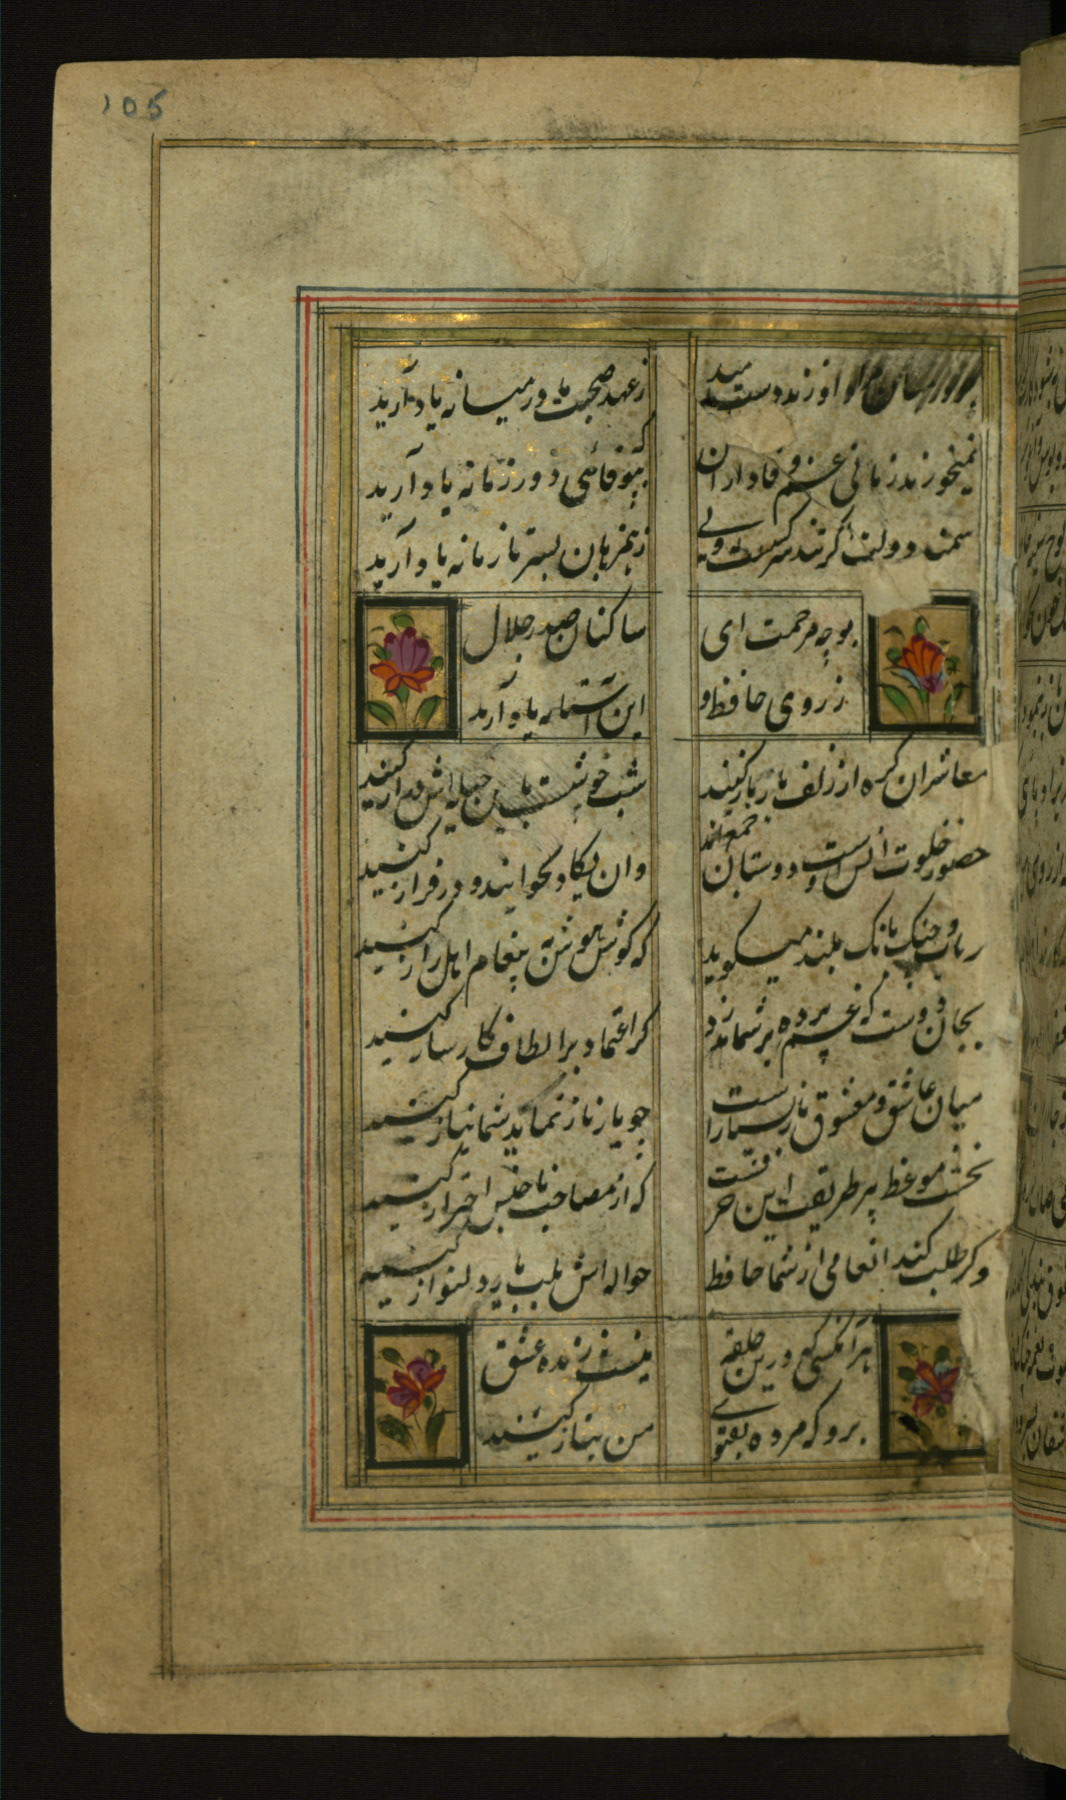 105
آورید دست امید
ز عهد صحبت ما در میانه یاد آرید
نمیخورند زمانی غم وفاداران
ز بیوفائی دور زمانه یاد آرید
سمند دولت اگر تند سرکشست ولی
ز همرهان بسر تازیانه یاد آرید
بوجه مرحمت ای
ساکنان صدر جلال
ز روی حافظ و
این آستانه یاد آرید
معاشران گره از زلف یار باز کنید
شب خوشست باین حیله اش دراز کنید
حضور خلوت انس است و دوستان جمعند
وان یکاد بخوانید و در فراز کنید
رباب و چنگ بانگ بلند میگوید
که گوش هوش به پیغام اهل راز کنید
بجان دوست که غم پرده بر شما ندرد
گر اعتماد بر الطاف کارساز کنید
میان عاشق و معشوق ناز بسیارست
چو یار ناز نماید شما نیاز کنید
نخست موعظه پیر طریقت این حرفست
که از مصاحب ناجنس احتراز کنید
وگر طلب کند انعامی از شما حافظ
حواله اش بلب یار دلنواز کنید
هر آنکسی که درین حلقه
نیست زنده عشق
برو که مرده بفتوی
من نماز کنید